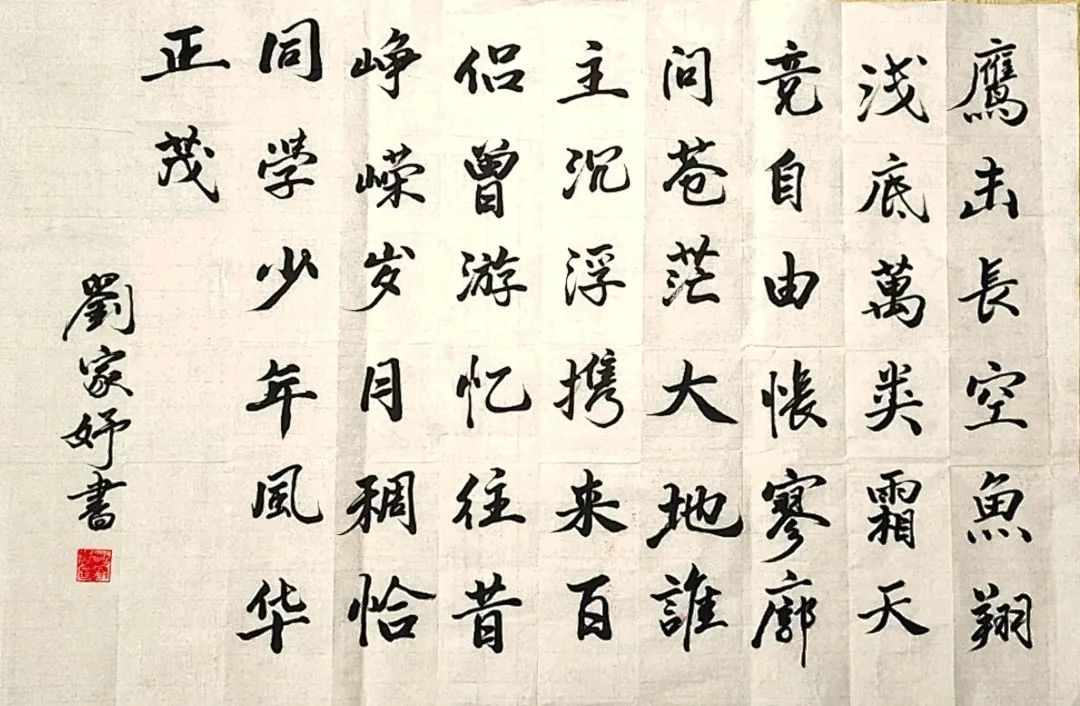 鷹击長空魚翔
浅底萬类霜天
竞自由悵寥廓
问苍茫大地誰
主沉浮携来百
侣曾游忆往昔
峥嵘岁月稠恰
同学少年風华
正茂
劉家妤書